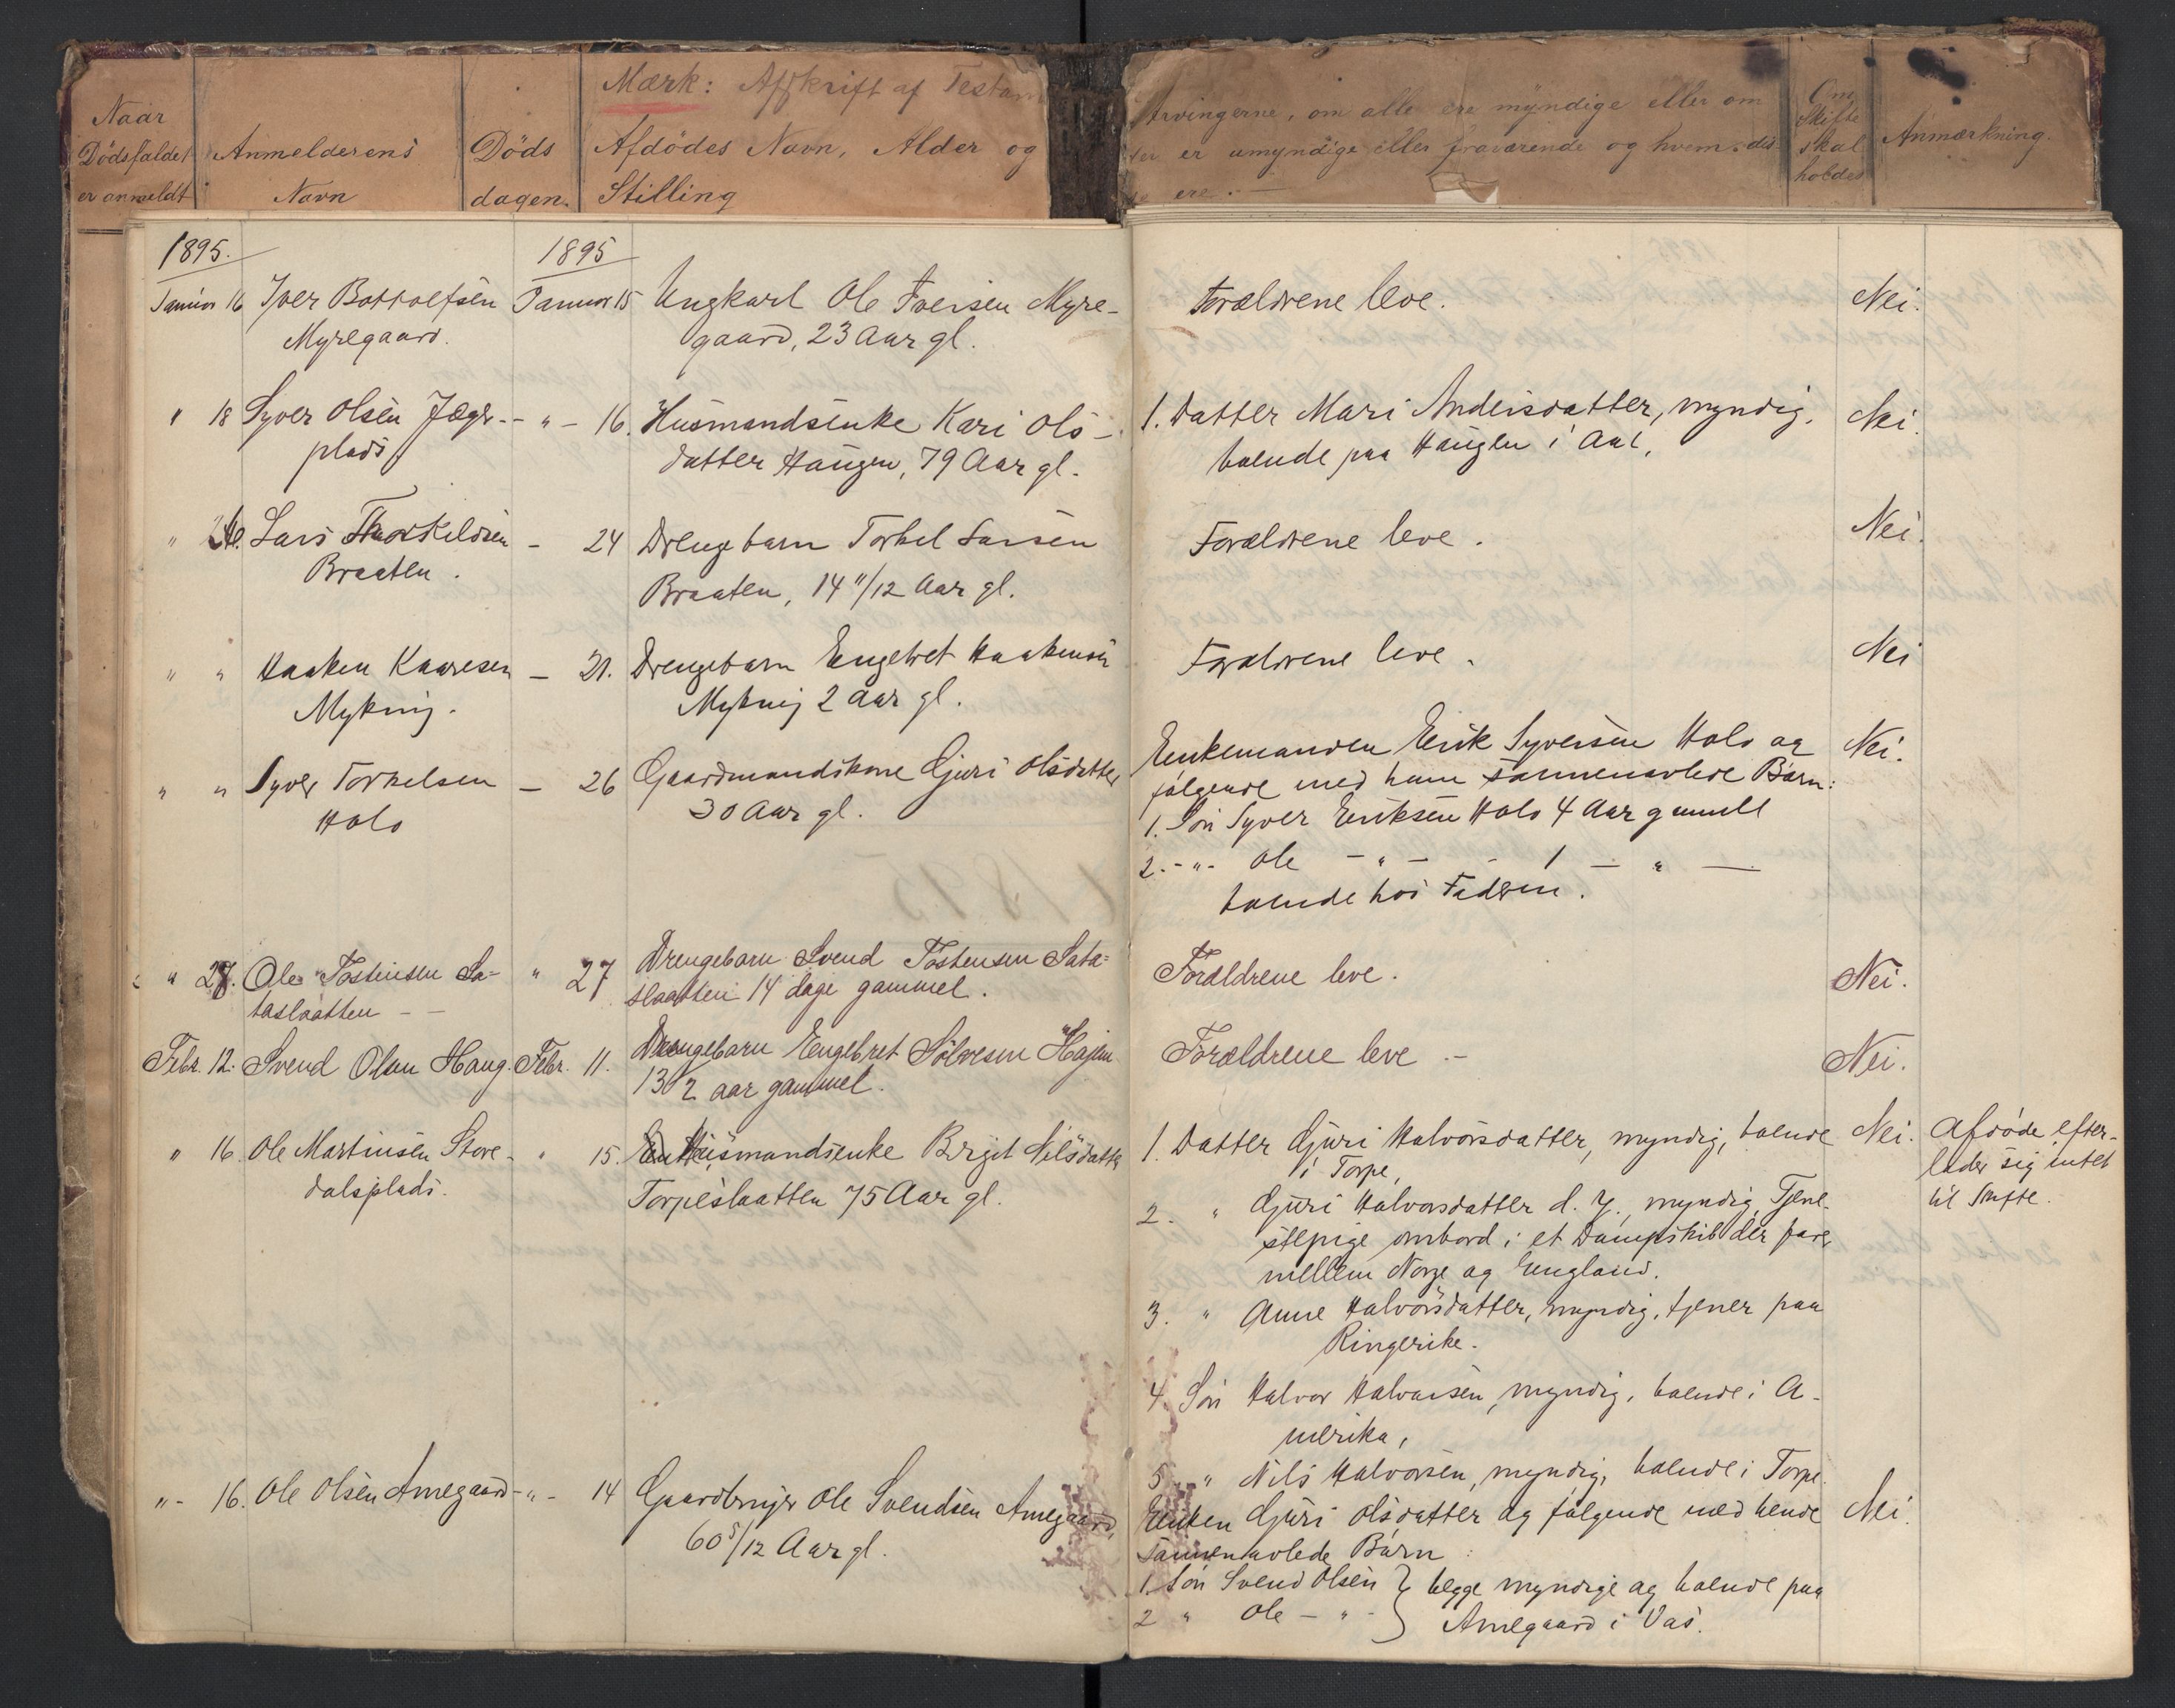 Naar
Dödsfaldet
er anmeldt
Anmelderens
Navn
Döds
dagen.
Mærk: Afskrift af Testam
Afdödes Navn, Alder og
Stilling
Arvingerne, om alle ere myndige eller om
er umyndige eller fraværende og hvem
ere.
Om
Skifte
skal
holdes
Anmærkning.
1895.
1895
Januar 16 Iver Bottolfsen
Myregaard.
Januar 15
Ungkarl Ole Iversen Myre-
gaard, 23 Aar gl.
Forældrene leve.
Nei.
" 18 Syver Olsen Jæger-
plads
- " - 16.
Husmandsenke Kari Ols-
datter Haugen, 79 Aar gl.
1. Datter Mari Andersdatter, myndig,
boende paa Haugen i Aal.
Nei.
" Lars Thorkildsen
Braaten.
- 24
Drengebarn Torkel Larsen
Braaten, 14 11/12 Aar gl.
Forældrene leve.
Nei.
" " Haaken Kaaresen
Myking.
- 21.
Drengebarn Engebret Haakensen
Myking 2 Aar gl.
Forældrene leve.
Nei
" " Syver Torkelsen
Holo
- 26
Gaardmandskone Gjuri Olsdatter
30 Aar gl.
Enkemanden Erik Syversen Holo og
følgende med ham sammenavlede Børn:
1. Søn Syver Eriksen Holo 4 Aar gammell
2. - " - Ole - " - - 1 - " -
boende hos Faderen.
Nei.
" 28. Ole Tostensen Sa-
taslaatten - -
" 27
Drengebarn Svend Tostensen Sata=
slaatten 14 dage gammel.
Forældrene leve.
Nei.
Febr. 12. Svend Olsen Haug.
Febr. 11.
Drengebarn Engebret Sölvesen Hajem
13 1/2 aar gammel.
Forældrene leve. -
Nei.
" 16. Ole Martinsen Store-
dalsplads.
" 15.
Husmandsenke Birgit Nilsdatter
Torpeslaatten 75 Aar gl.
1. Datter Gjuri Halvorsdatter, myndig, boende
i Torpe,
2. " Gjuri Halvorsdatter d. y., myndig, Tjene-
stepige ombord i et Dampskib der farer
mellem Norge og England.
3. " Anne Halvorsdatter, myndig, tjener paa
Ringerike.
4. Søn Halvor Halvorsen, myndig, boende i A-
merika,
5. " Nils Halvorsen, myndig, boende i Torpe.
Nei.
Afdöde efter-
lader sig intet
til Skifte.
" - 16. Ole Olsen Arnegaard
- " - 14
Gaardbruger Ole Svendsen Arnegaard,
60 5/12 Aar gl.
Enken Gjuri Olsdatter og følgende med hende
sammenavlede Børn:
1. Søn Svend Olsen } begge myndige og boende paa
2 " Ole - " - } Arnegaard i Vas.
Nei.